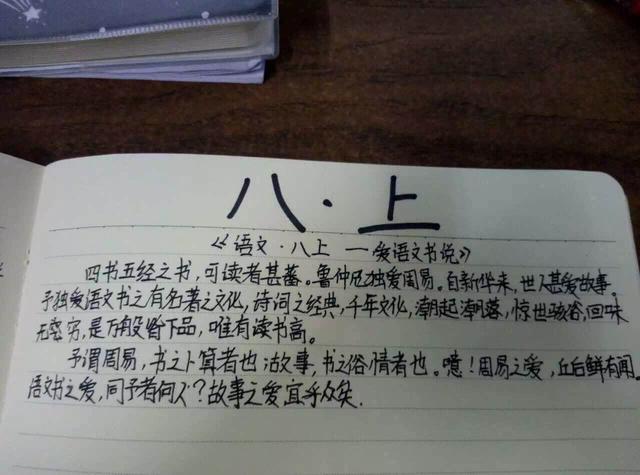 八·上
《语文·八上 — 爱语文书说》
四书五经之书，可读者甚蕃。鲁仲尼独爱周易。自新华来，世人甚爱故事。
予独爱语文书之有名著之文化，诗词之经典，千年文化，潮起潮落，惊世骇俗，回味
无穷，是万般皆下品，唯有读书高。
予谓周易，书之卜算者也；故事，书之俗情者也。噫！周易之爱，丘后鲜有闻。
语文书之爱，同予者何人？故事之爱宜乎众矣.